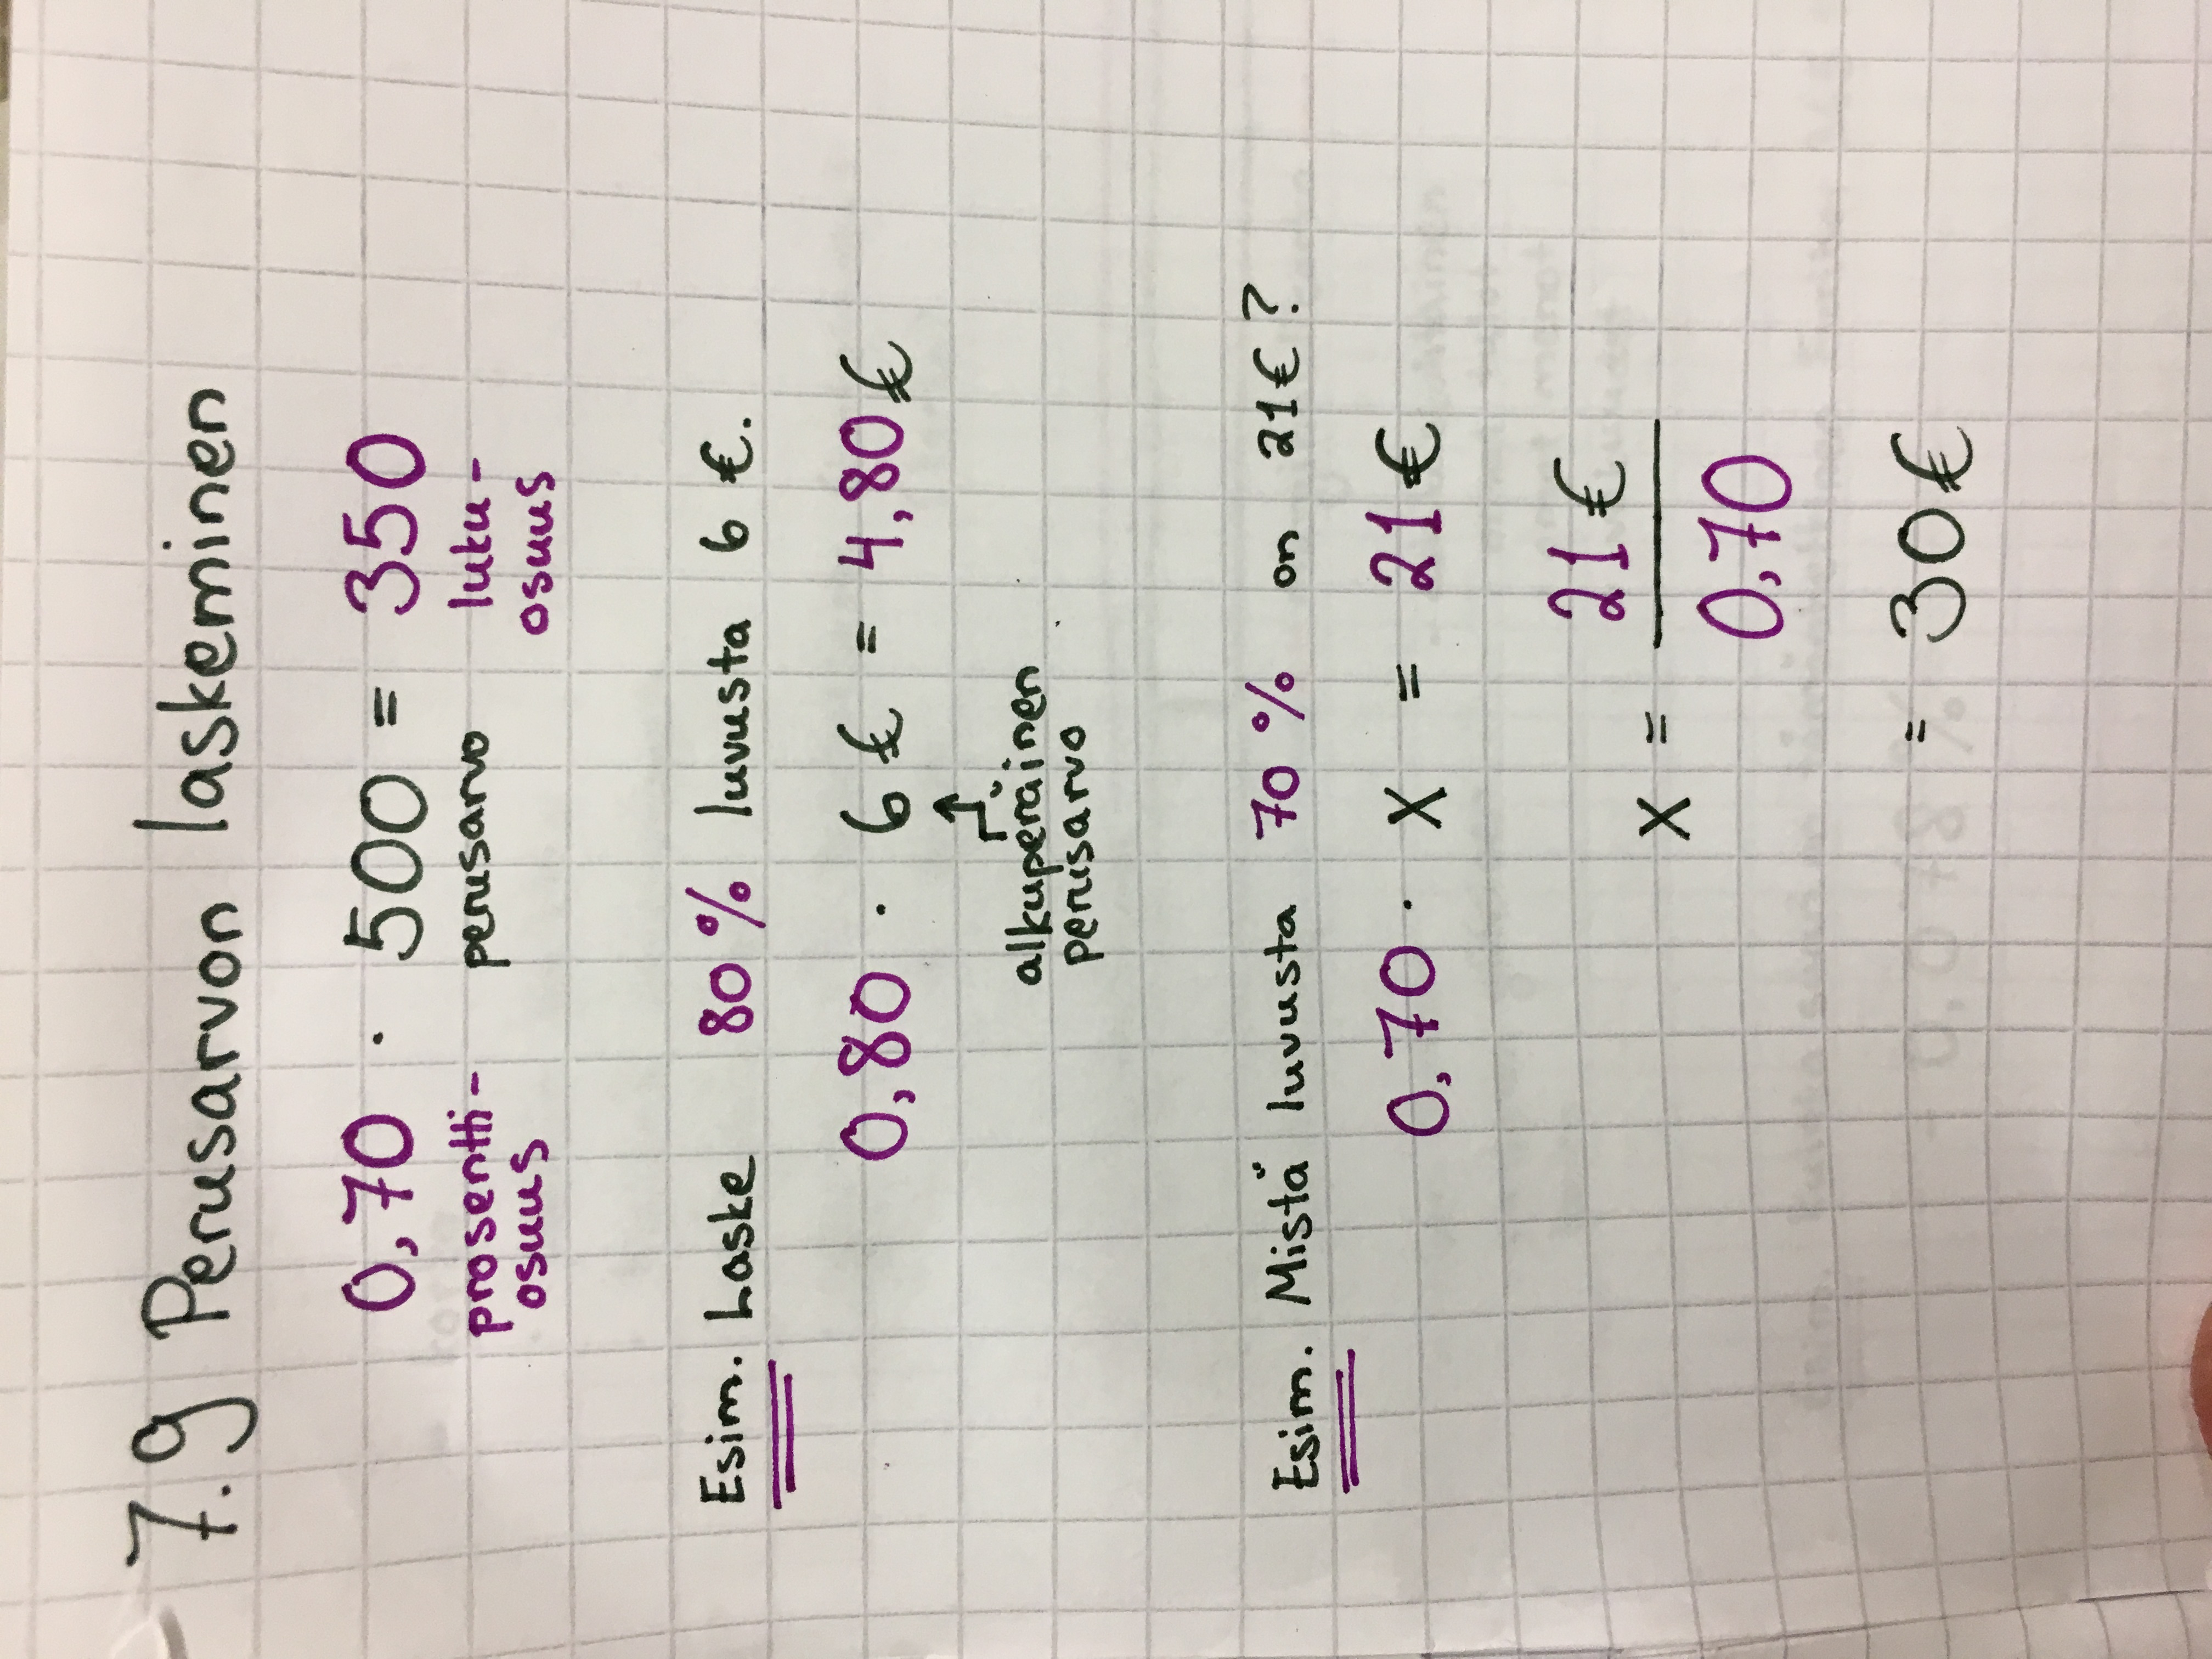 7.9 Perusarvon laskeminen
0,70 · 500 = 350
prosentti- perusarvo luku-
osuus osuus
Esim. Laske 80 % luvusta 6 €.
0,80 · 6 € = 4,80 €
alkuperäinen
perusarvo
Esim. Mistä luvusta 70 % on 21 € ?
0,70 · x = 21 €
x = 21 €
0,70
= 30 €